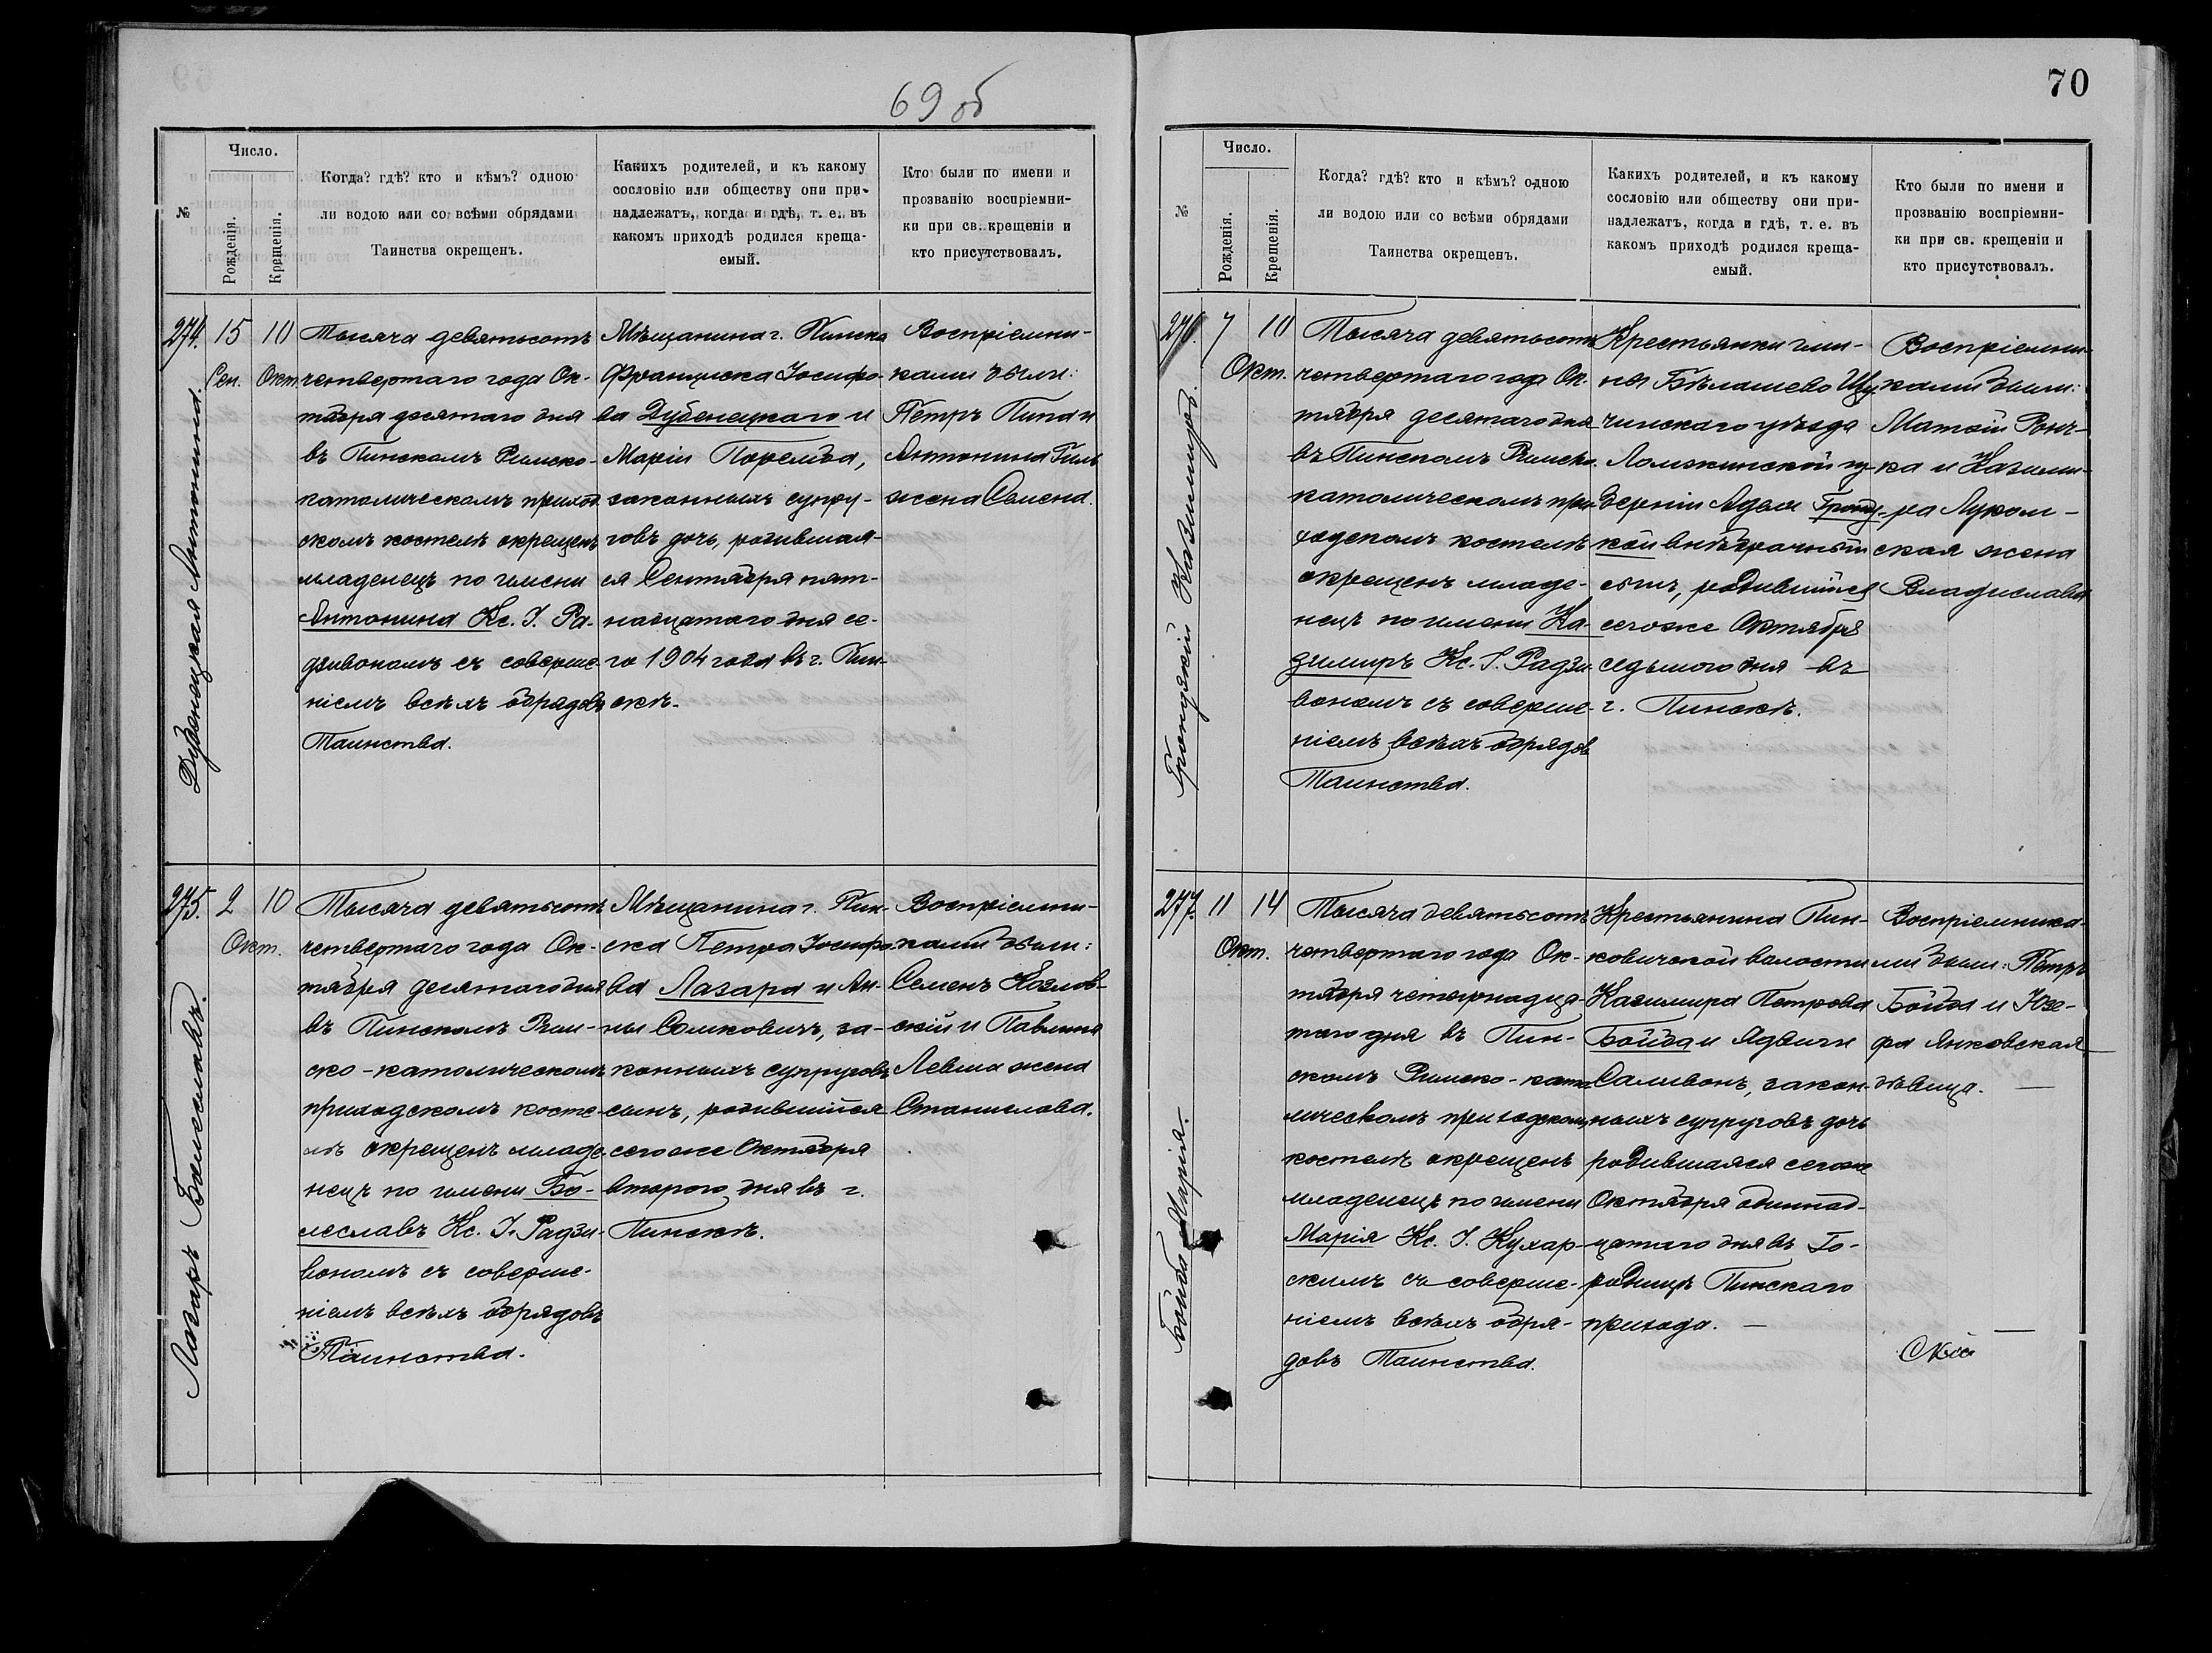 69 об
№
Число.
Рожденія.
Крещенія.
Когда? гдѣ? кто и кѣмъ? одною
ли водою или со всѣми обрядами
Таинства окрещенъ.
Какихъ родителей, и къ какому
сословію или обществу они при-
надлежатъ, когда и гдѣ, т. е. въ
какомъ приходѣ родился креща-
емый.
Кто были по имени и
прозванію воспріемни-
ки при св. крещеніи и
кто присутствовалъ.
274.
Дубенецкая Антонина.
15
Сен.
10
Окт.
Тысяча девятьсотъ
четвертаго года Ок-
тября десятаго дня
въ Пинскомъ Римско-
католическомъ приход
скомъ костелѣ окрещенъ
младенецъ по имени
Антонина Кс. І. Ра-
дзивономъ съ соверше-
ніемъ всѣхъ обрядовъ
Таинства.
Мѣщанина г. Пинска
Франциска Іосифо-
ва Дубенецкаго и
Маріи Поремба,
законныхъ супру-
говъ дочь, родившая-
ся Сентября пят-
надцатаго дня се-
го 1904 года въ г. Пин-
скѣ.
Воспріемни-
ками были:
Петръ Пипа и
Антонина Гиль
жена Семена.
275.
Лазаръ Болеславъ.
2
Окт.
10
Тысяча девятьсотъ
четвертаго года Ок-
тября десятаго дня
въ Пинскомъ Рим-
ско-католическомъ
приходскомъ косте-
лѣ окрещенъ младе-
нецъ по имени Бо-
леславъ Кс. І. Радзи-
вономъ съ соверше-
ніемъ всѣхъ обрядовъ
Таинства.
Мѣщанина г. Пин-
ска Петра Іосифо-
ва Лазара и Ан-
ны Сомковичъ, за-
конныхъ супруговъ
сынъ, родившійся
сего же Октября
второго дня въ г.
Пинскѣ.
Воспріемни-
ками были:
Семенъ Козлов-
скій и Павлина
Левша жена
Станислава.
70
№
Число.
Рожденія.
Крещенія.
Когда? гдѣ? кто и кѣмъ? одною
ли водою или со всѣми обрядами
Таинства окрещенъ.
Какихъ родителей, и къ какому
сословію или обществу они при-
надлежатъ, когда и гдѣ, т. е. въ
какомъ приходѣ родился креща-
емый.
Кто были по имени и
прозванію воспріемни-
ки при св. крещеніи и
кто присутствовалъ.
276.
Казимиръ.
7
Окт.
10
Тысяча девятьсотъ
четвертаго года Ок-
тября десятаго дня
въ Пинскомъ Римско-
католическомъ при-
ходскомъ костелѣ
окрещенъ младе-
нецъ по имени Ка-
зимиръ Кс. І. Радзи-
вономъ съ соверше-
ніемъ всѣхъ обрядовъ
Таинства.
Крестьянки гми-
ны Бѣлашево Щу-
чинскаго уѣзда
Ломжинской гу-
берніи Адели
внѣбрачный
сынъ, родившійся
сего же Октября
седьмого дня въ
г. Пинскѣ.
Воспріемни-
ками были:
Матвій
ка и Казими-
ра Луком-
ская жена
Владислава
277.
Бойба Марія.
11
Окт.
14
Тысяча девятьсотъ
четвертаго года Ок-
тября четырнадца-
таго дня въ Пин-
скомъ Римско-като
лическомъ приходскомъ
костелѣ окрещенъ
младенецъ по имени
Марія Кс. І. Кухар-
скимъ съ соверше-
ніемъ всѣхъ обря-
довъ Таинства.
Крестьянина Пин-
ковичской волости
Казимира Петрова
Бойба и Ядвиги
Саливонъ, закон-
ныхъ супруговъ дочь
родившаяся сего же
Октября одиннад-
цатаго дня въ Го-
родищѣ Пинскаго
прихода. —
Воспріемника-
ми были: Петръ
Бойба и Юзе-
фа Янковская
дѣвица. —